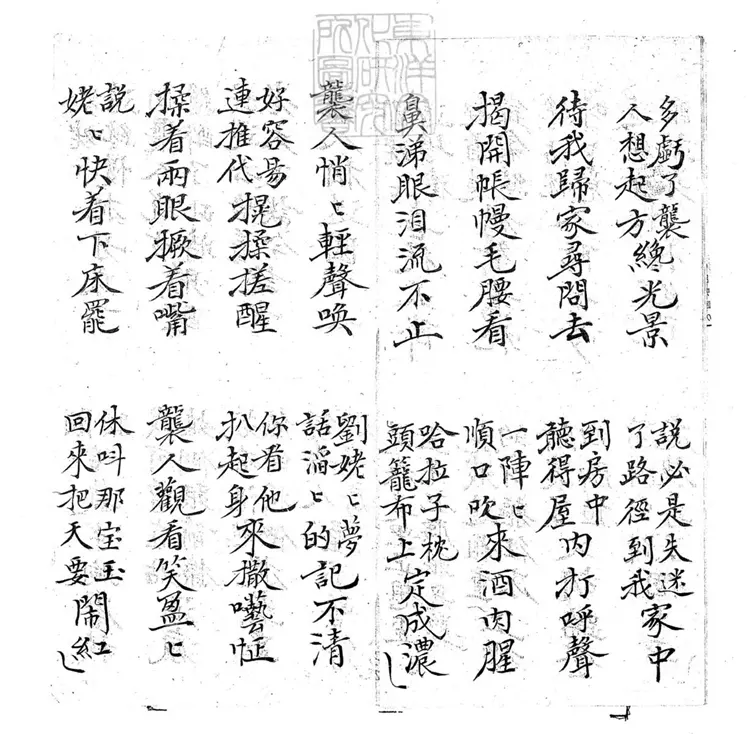 多虧了襲人想起方纔光景
說必是失迷了路徑到我家中
待我歸家尋問去
到房中聽得屋內打呼聲
揭開帳幔毛腰看
一陣〻順口吹來酒肉腥
鼻涕眼泪流不止
哈拉子枕頭籠布上定成濃
襲人悄〻輕聲喚
劉姥〻夢話滔〻的記不清
好容易連推代揉搓醒
你看他扒起身來撒囈怔
揉着兩眼撅着嘴
襲人觀看笑盈〻
說姥〻快着下床罷
休叫那宝玉回來把天要鬧紅